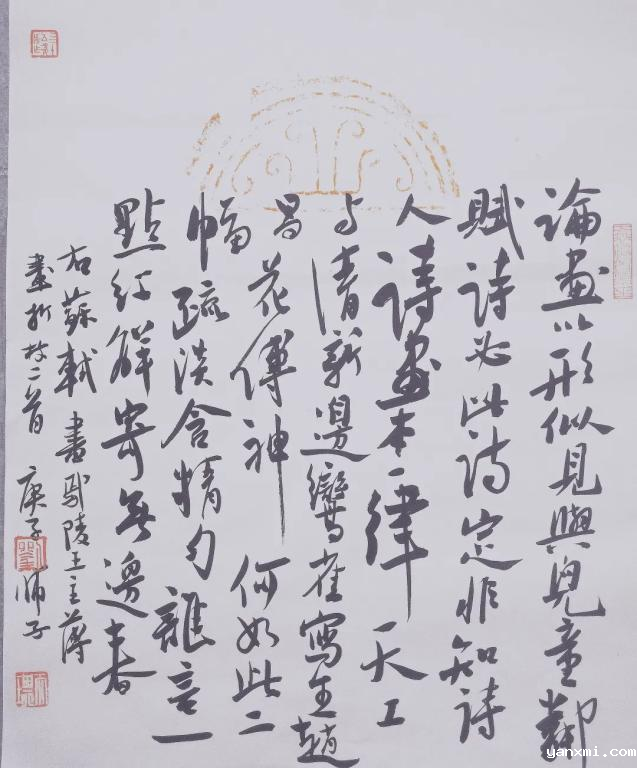 論畫以形似見與兒童鄰
賦詩必此詩定非知詩
人詩畫本一律天工
与清新邊鸞雀寫生趙
昌花傳神何如此二
幅疏淡含精勻誰言一
點红解寄無邊春
右蘇軾書鄢陵王主薄
畫折枝二首 庚子
yanxmi.com